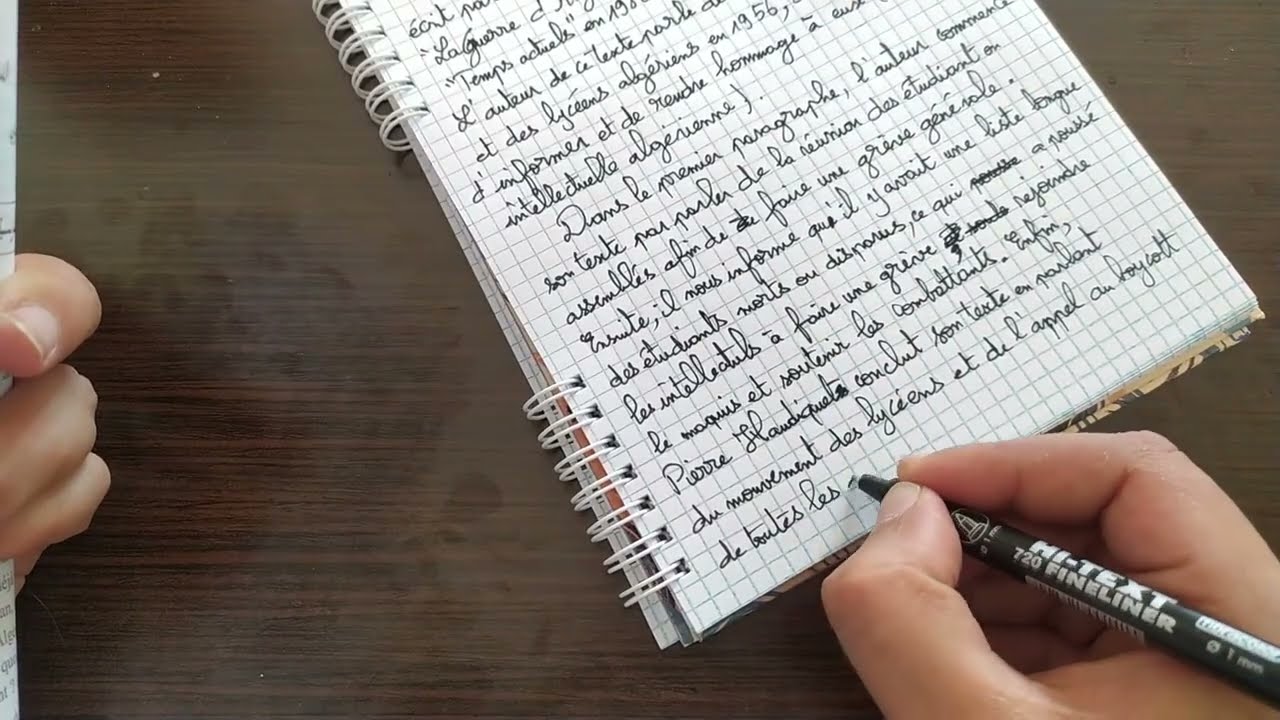 écrit par
"La Guerre d'
"Temps actuels" en 198
L'auteur de ce texte parle de
et des lycéens algériens en 1956,
d'informer et de rendre hommage à eux (
intellectuelle algérienne).
Dans le premier paragraphe, l'auteur commence
son texte par parler de la réunion des étudiant on
assemblés afin de faire une grève générale.
Ensuite, il nous informe qu'il y'avait une liste longue
des étudiants morts ou disparus, ce qui a poussé
les intellectuels à faire une grève rejoindre
le maquis et soutenir les combattants. Enfin,
Pierre Haudiquet conclut son texte en parlant
du mouvement des lycéens et de l'appel au boycott
de toutes les
HI-TEXT
720 FINELINER
Ø 1 mm